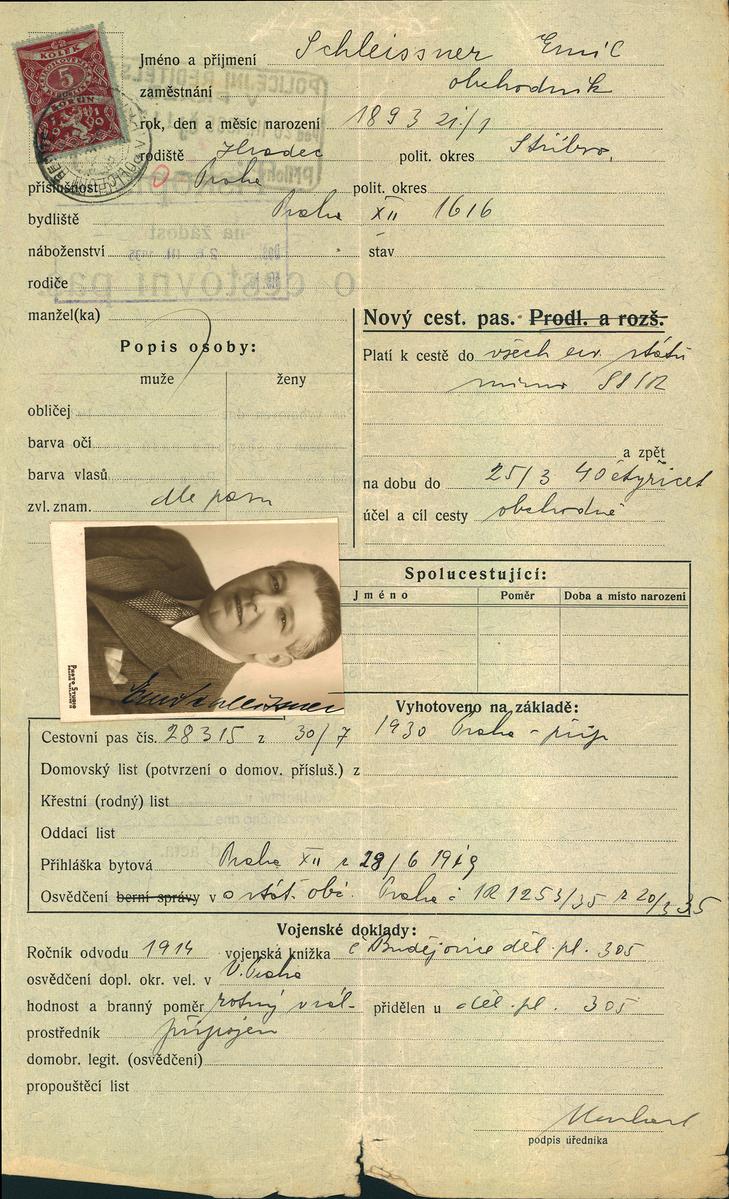 KOLEK
5
KORUN
1919
Jméno a příjmení Schleissner Emil
zaměstnání obchodník
rok, den a měsíc narození 1893 21/1
rodiště Hradec polit. okres Stříbro.
příslušnost Praha polit. okres
bydliště Praha XII 1616
náboženství stav
rodiče
manžel(ka)
Popis osoby:
muže ženy
obličej
barva očí
barva vlasů
zvl. znam. dle pasu
Nový cest. pas. Prodl. a rozš.
Platí k cestě do všech evr. států
mimo SSSR
a zpět
na dobu do 25/3 40 čtyřicet
účel a cíl cesty obchodně
Photo Studio
Emil Schleissner
Spolucestující:
Jméno Poměr Doba a místo narození
Vyhotoveno na základě:
Cestovní pas čís. 28315 z 30/7 1930 Praha - příp
Domovský list (potvrzení o domov. přísluš.) z
Křestní (rodný) list
Oddací list
Přihláška bytová Praha XII z 28/6 1919
Osvědčení berní správy v o stát. obč. Praha č 1R 1253/35 z 20/3 35
Vojenské doklady:
Ročník odvodu 1914 vojenská knížka č Budějovice děl. pl. 305
osvědčení dopl. okr. vel. v V. Praha
hodnost a branný poměr rotný v zál. přidělen u děl. pl. 305
prostředník připojen
domobr. legit. (osvědčení)
propouštěcí list
podpis úředníka